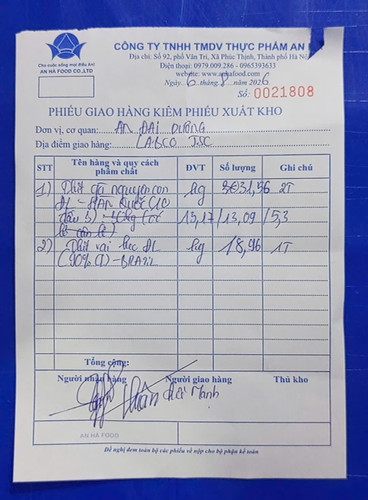 Cho cuộc sống mọi điều An!
AN HA FOOD CO.,LTD
CÔNG TY TNHH TMDV THỰC PHẨM AN
Địa chỉ: Số 92, phố Vân Trì, Xã Phúc Thịnh, Thành phố Hà
Điện thoại: 0979.009.286 - 0965393633
website: www.anhafood.com
Ngày 6 tháng 8 năm 2026
Số: 0021808
PHIẾU GIAO HÀNG KIÊM PHIẾU XUẤT KHO
Đơn vị, cơ quan: AN ĐẠI DƯƠNG
Địa điểm giao hàng: LABCO JSC
STT Tên hàng và quy cách phẩm chất ĐVT Số lượng Ghi chú
1) Thịt gà nguyên con kg 31,56 2T
ĐL - HÀN QUỐC
13,17 / 13,09 / 5,3
2) Thịt vai ĐL kg 18,96 1T
(90% ) - BRAZIL
Tổng cộng:
Người nhận hàng Người giao hàng Thủ kho
Mạnh
AN HÀ FOOD
Đề nghị đem toàn bộ các phiếu về nộp cho bộ phận kế toán